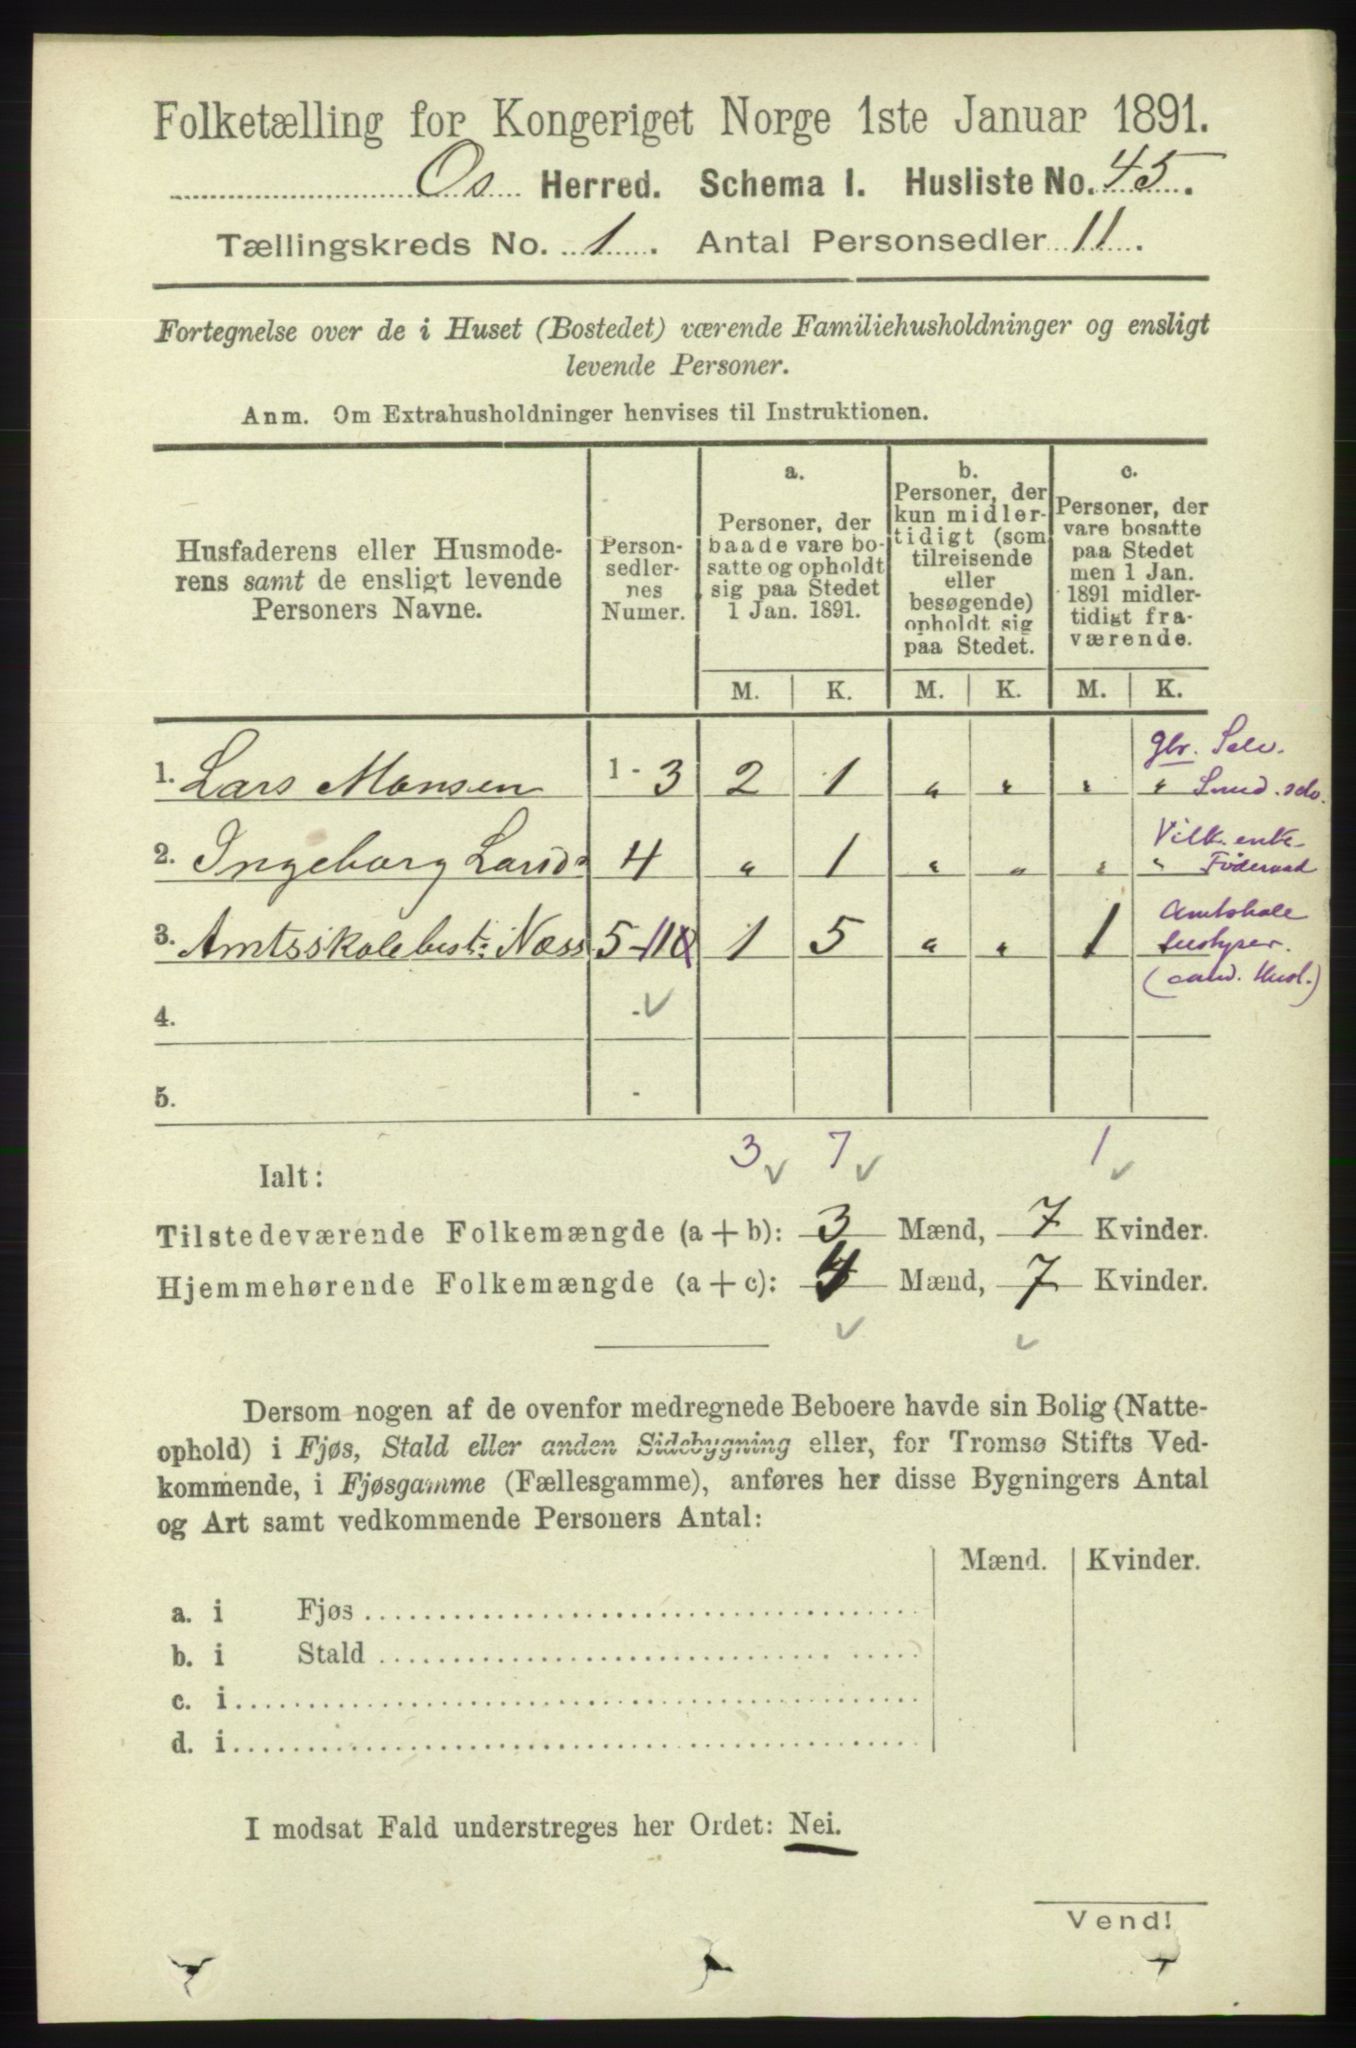 Folketælling for Kongeriget Norge 1ste Januar 1891.
Os Herred. Schema I. Husliste No. 45.
Tællingskreds No. 1. Antal Personsedler 11.
Fortegnelse over de i Huset (Bostedet) værende Familiehusholdninger og ensligt
levende Personer.
Anm. Om Extrahusholdninger henvises til Instruktionen.
Husfaderens eller Husmode-
rens samt de ensligt levende
Personers Navne.
Person-
sedler-
nes
Numer.
a.
Personer, der
baade vare bo-
satte og opholdt
sig paa Stedet
1 Jan. 1891.
b.
Personer, der
kun midler-
tidigt (som
tilreisende
eller
besøgende)
opholdt sig
paa Stedet.
c.
Personer, der
vare bosatte
paa Stedet
men 1 Jan.
1891 midler-
tidigt fra-
værende.
M. K. M. K. M. K.
gbr. Selv.
1. Lars Monsen 1 - 3 2 1 " " " "
Vilk. enke
2. Ingeborg Larsd: 4 " 1 " " " " Föderaad
Amtskole
3. Amtsskolebest: Næss 5-11 1 5 " " 1
4. -
5. -
3 7 1
Ialt:
Tilstedeværende Folkemængde (a + b): 3 Mænd, 7 Kvinder.
Hjemmehørende Folkemængde (a + c): 4 Mænd, 7 Kvinder.
Dersom nogen af de ovenfor medregnede Beboere havde sin Bolig (Natte-
ophold) i Fjøs, Stald eller anden Sidebygning eller, for Tromsø Stifts Ved-
kommende, i Fjøsgamme (Fællesgamme), anføres her disse Bygningers Antal
og Art samt vedkommende Personers Antal:
Mænd. Kvinder.
a. i Fjøs
b. i Stald
c. i
d. i
I modsat Fald understreges her Ordet: Nei.
Vend!